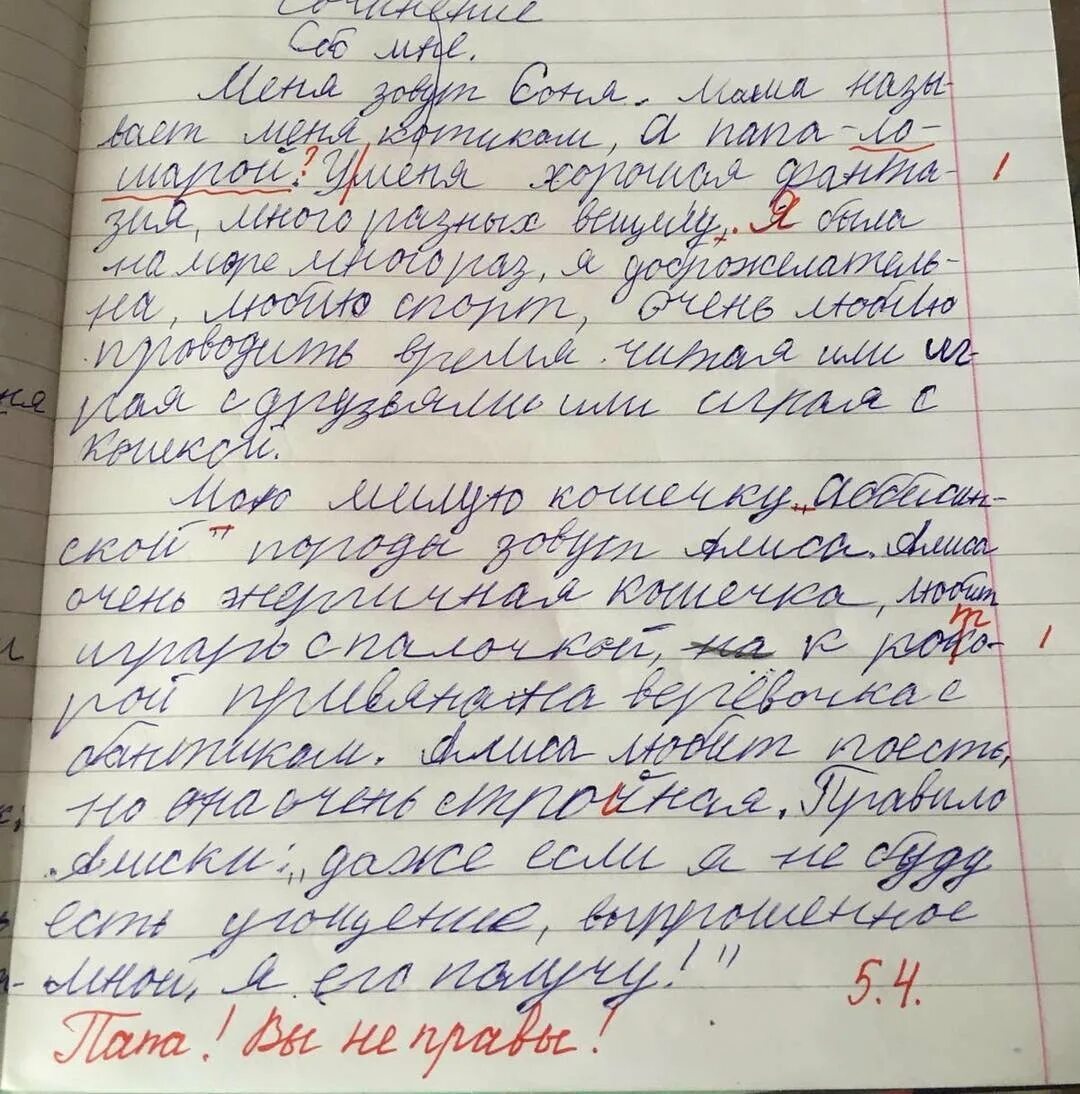 Сочинение
Обо мне.
Меня зовут Соня. Мама назы-
вает меня котиком, а папа - ло-
шарой? У меня хорошая фанта- 1
зия, много разных вещицу,. Я была
на море много раз, я доброжелатель-
на, люблю спорт, очень люблю
проводить время читая или иг-
ня
рая с друзьями или играя с
кошкой.
Мою милую кошечку „Аббисин-
ской" породы зовут Алиса. Алиса
очень энергичная кошечка, любит
играть с палочкой, на к которой 1
рой привязана верёвочка с
бантиком. Алиса любит поесть,
но она очень стройная. Правило
Алиски: „даже если я не буду
есть угощение, выпрошенное
мной, я его получу!"
5.4.
Папа! Вы не правы!